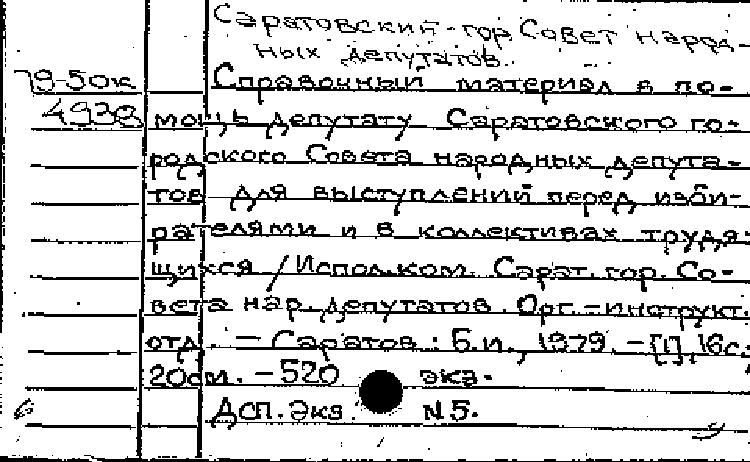 Саратовский гор. Совет народ-
ных депутатов.
79-50к Справочный материал в по-
4938 мощь депутату Саратовского го-
родского Совета народных депута-
тов для выступлений перед изби-
рателями и в коллективах трудя-
щихся / Исполком. Сарат. гор. Со-
вета нар. депутатов. Орг.-инструкт.
отд. – Саратов : Б.и., 1979. – [1], 16с.;
20см. – 520 экз.
б Дсп. Экз. N5.